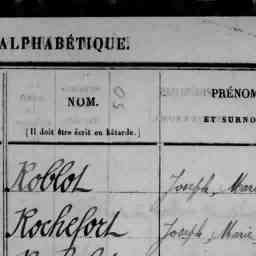 ALPHABÉTIQUE.
NOM.
[Il doit être écrit en bâtarde.]
PRÉNOM
ET SURNO
Roblot Joseph, Mari
Rochefort Joseph, Marie